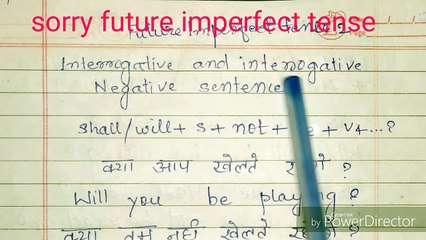 sorry future imperfect tense
Future imperfect tense 2
Interrogative and interrogative
Negative sentence
shall/will + s + not + + V4...?
क्या आप खेलते ?
Will you be playing ?
क्या तुम नहीं खेलते रहोगे ?
by PowerDirector